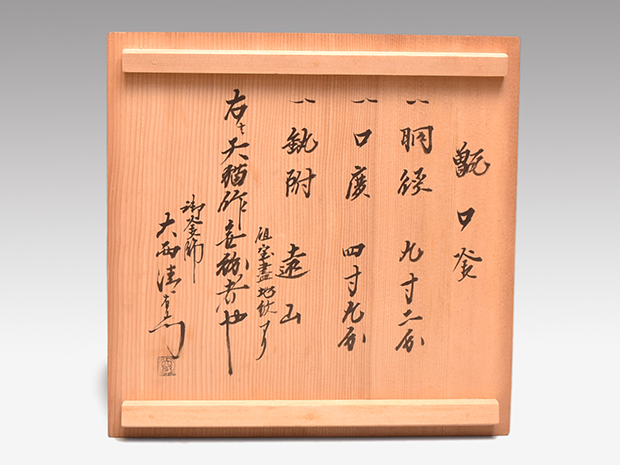 甑口釜
一 胴径 九寸二分
一 口廣 四寸九分
一 釻附 遠山
但宝盡地紋アリ
右者天猫作無紛者也
御釜師
大西清右衛門